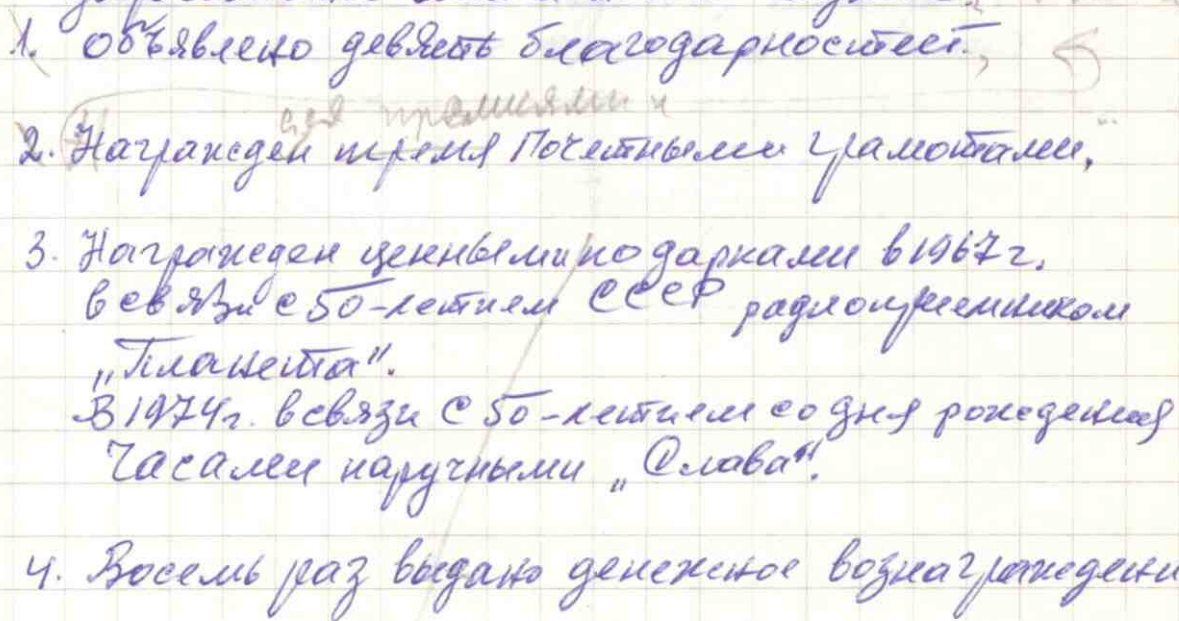 1. Объявлено девять благодарностей,
премиями и
2. Награжден тремя Почетными грамотами.
3. Награжден ценными подарками в 1967 г.
в связи с 50-летием СССР радиоприемником
„Планета".
В 1974 г. в связи с 50-летием со дня рождения
Часами наручными „Слава".
4. Восемь раз выдано денежное вознаграждени